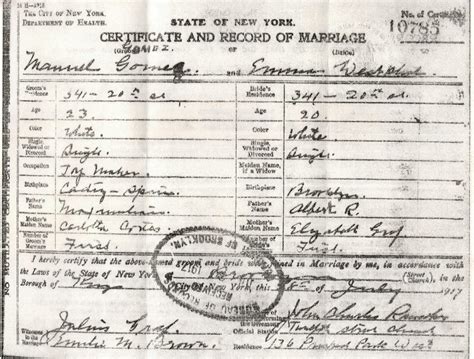 THE CITY OF NEW YORK.
DEPARTMENT OF HEALTH.
STATE OF NEW YORK.
No. of Certificate
10785
CERTIFICATE AND RECORD OF MARRIAGE
GOMEZ
(Groom) (Bride)
Manuel Gomez and Emma
Groom's Residence 341-20th st. Bride's Residence 341-20th st.
Age 23 Age 20
Color White Color White
Single, Widowed or Divorced Single Single, Widowed or Divorced Single
Occupation Maker Maiden Name, if a Widow
Birthplace Cadiz-Spain Birthplace Brooklyn
Father's Name Maximilian Father's Name Albert R.
Mother's Maiden Name Mother's Maiden Name Elizabeth Graf
Number of Groom's Marriage First Number of Bride's Marriage First
I hereby certify that the above-named groom and bride were joined in Marriage by me, in accordance with
the Laws of the State of New York, (Street) (Church),
Borough of of 1917
Witnesses to the Marriage Julius Graf John Charles
Emilie M. Brown Official Station street church
Residence 136 Prospect Park West
BUREAU OF
1917
OF BROOKLYN